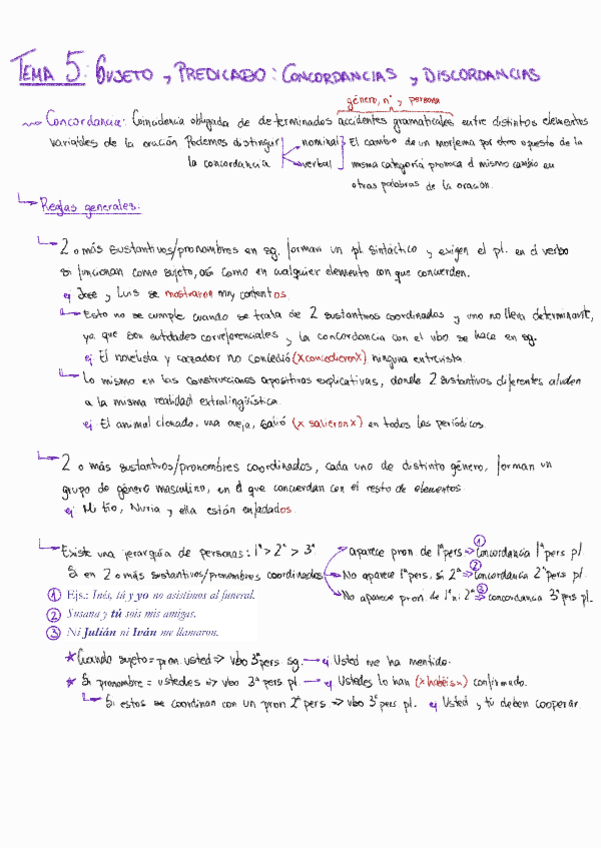 TEMA 5: SUJETO y PREDICADO: CONCORDANCIAS y DISCORDANCIAS
género, nº y persona
Concordancia: Coincidencia obligada de determinados accidentes gramaticales entre distintos elementos
variables de la oración. Podemos distinguir nominal El cambio de un morfema por otro opuesto de la
la concordancia verbal misma categoría provoca el mismo cambio en
otras palabras de la oración.
Reglas generales:
2 o más sustantivos/pronombres en sg. forman un pl sintáctico y exigen el pl. en el verbo
si funcionan como sujeto, así como en cualquier elemento con que concuerden.
ej José y Luis se mostraron muy contentos.
Esto no se cumple cuando se trata de 2 sustantivos coordinados y uno no lleva determinante,
ya que son entidades correferenciales y la concordancia con el vbo se hace en sg.
ej El novelista y cazador no concedió (x concedieron x) ninguna entrevista.
Lo mismo en las construcciones apositivas explicativas, donde 2 sustantivos diferentes aluden
a la misma realidad extralingüística.
ej El animal clonado, una oveja, salió (x salieron x) en todos los periódicos.
2 o más sustantivos/pronombres coordinados, cada uno de distinto género, forman un
grupo de género masculino, en el que concuerdan con el resto de elementos
ej Mi tío, Nuria y ella están enfadados.
Existe una jerarquía de personas: 1ª > 2ª > 3ª aparece pron de 1ª pers ⇒ ① concordancia 1ª pers pl.
Si en 2 o más sustantivos/pronombres coordinados No aparece 1ª pers, sí 2ª ⇒ ② concordancia 2ª pers pl.
No aparece pron. de 1ª ni 2ª ⇒ ③ concordancia 3ª pers pl.
① Ejs.: Inés, tú y yo no asistimos al funeral.
② Susana y tú sois mis amigas.
③ Ni Julián ni Iván me llamaron.
* Cuando sujeto = pron. usted ⇒ vbo 3ª pers sg. → ej Usted me ha mentido.
* Si pronombre = ustedes ⇒ vbo 3ª pers pl. → ej Ustedes lo han (x habéis x) confirmado.
Si estos se coordinan con un pron 2ª pers ⇒ vbo 3ª pers pl. ej Usted y tú deben cooperar